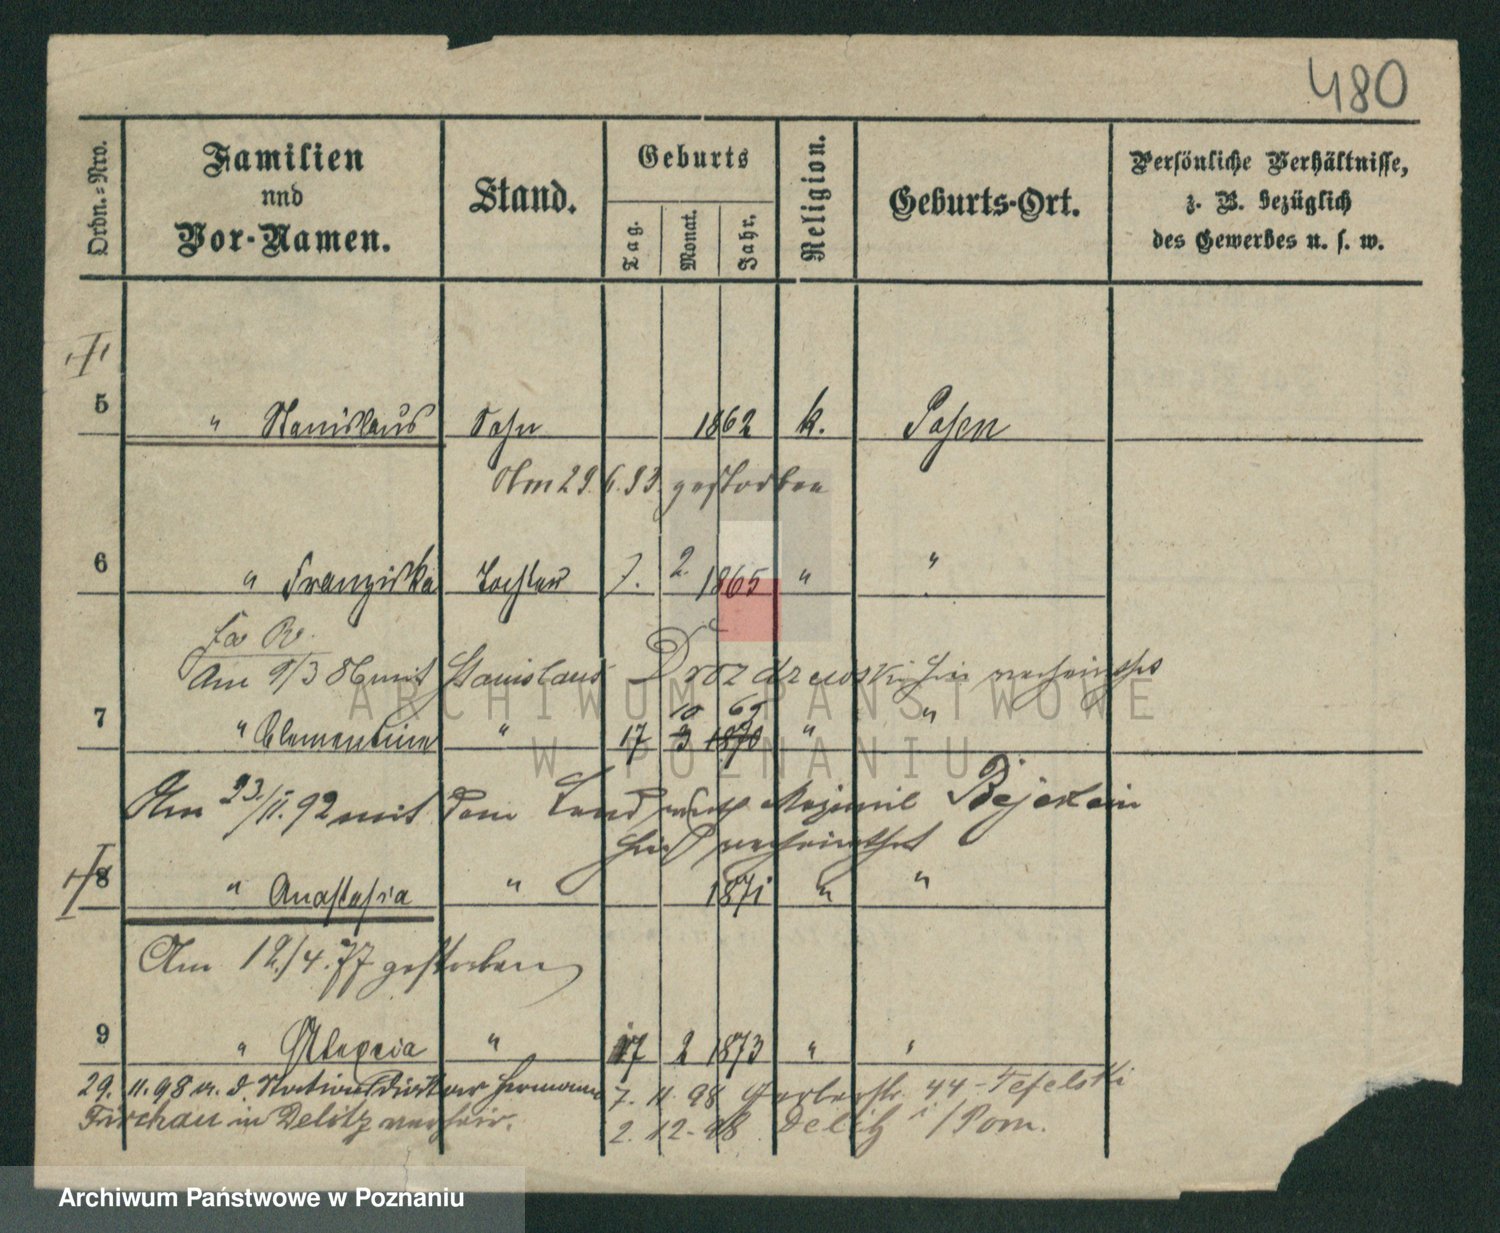 480
Ordn.=Nro.
Familien
nnd
Vor-Namen.
Stand.
Geburts
Tag.
Monat.
Jahr.
Religion.
Geburts-Ort.
Persönliche Verhältnisse,
z. B. bezüglich
des Gewerbes u. s. w.
5 " Stanislaus Sohn 1862 k. Posen
Am 29.6.93 gestorben
6 " Franziska Tochter 7. 2. 1865 " "
Am 9/3 86 mit Stanislaus Drozdrewski hier verheirathet
10 69
7 " Clementine " 17 3 1870 " "
Am 23./11.92 mit dem Maximil
hier verheirathet
8 " Anastasia " 1871 " "
Am 12./4.77 gestorben
9 " Alexia " 17 2 1873 " "
29. 11. 98 m. d. Hermann 7. 11. 98 Gerberstr. 44 - Tefelski
Firchau in Delitz verheir. 2. 12. 98 Delitz i/Pom.
ARCHIWUM PAŃSTWOWE
W POZNANIU
Archiwum Państwowe w Poznaniu